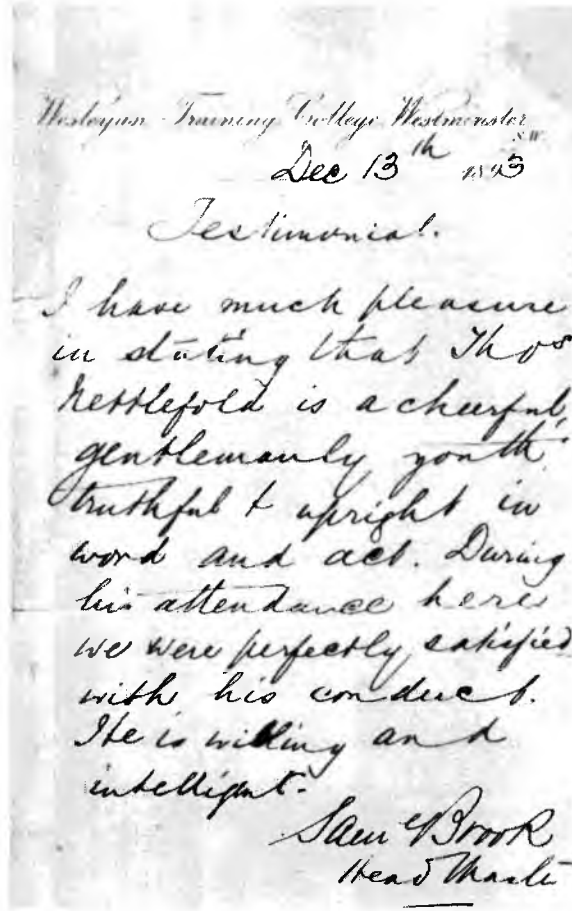 Wesleyan Training College Westminster
S.W.
Dec 13th 1893
Testimonial.
I have much pleasure
in stating that Thos
Nettlefold is a cheerful,
gentlemanly youth
truthful & upright in
word and act. During
his attendance here
we were perfectly satisfied
with his conduct.
He is willing and
intelligent.
Saml Brook
Head Master